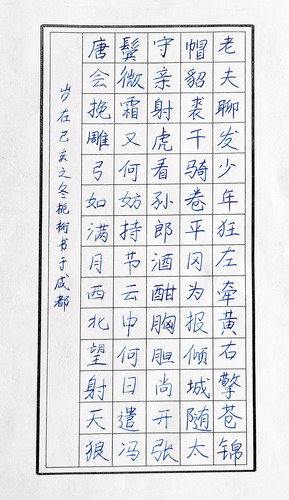 老夫聊发少年狂左牵黄右擎苍锦
帽貂裘千骑卷平冈为报倾城随太
守亲射虎看孙郎酒酣胸胆尚开张
鬓微霜又何妨持节云中何日遣冯
唐会挽雕弓如满月西北望射天狼
岁在己亥之冬桃书于成都